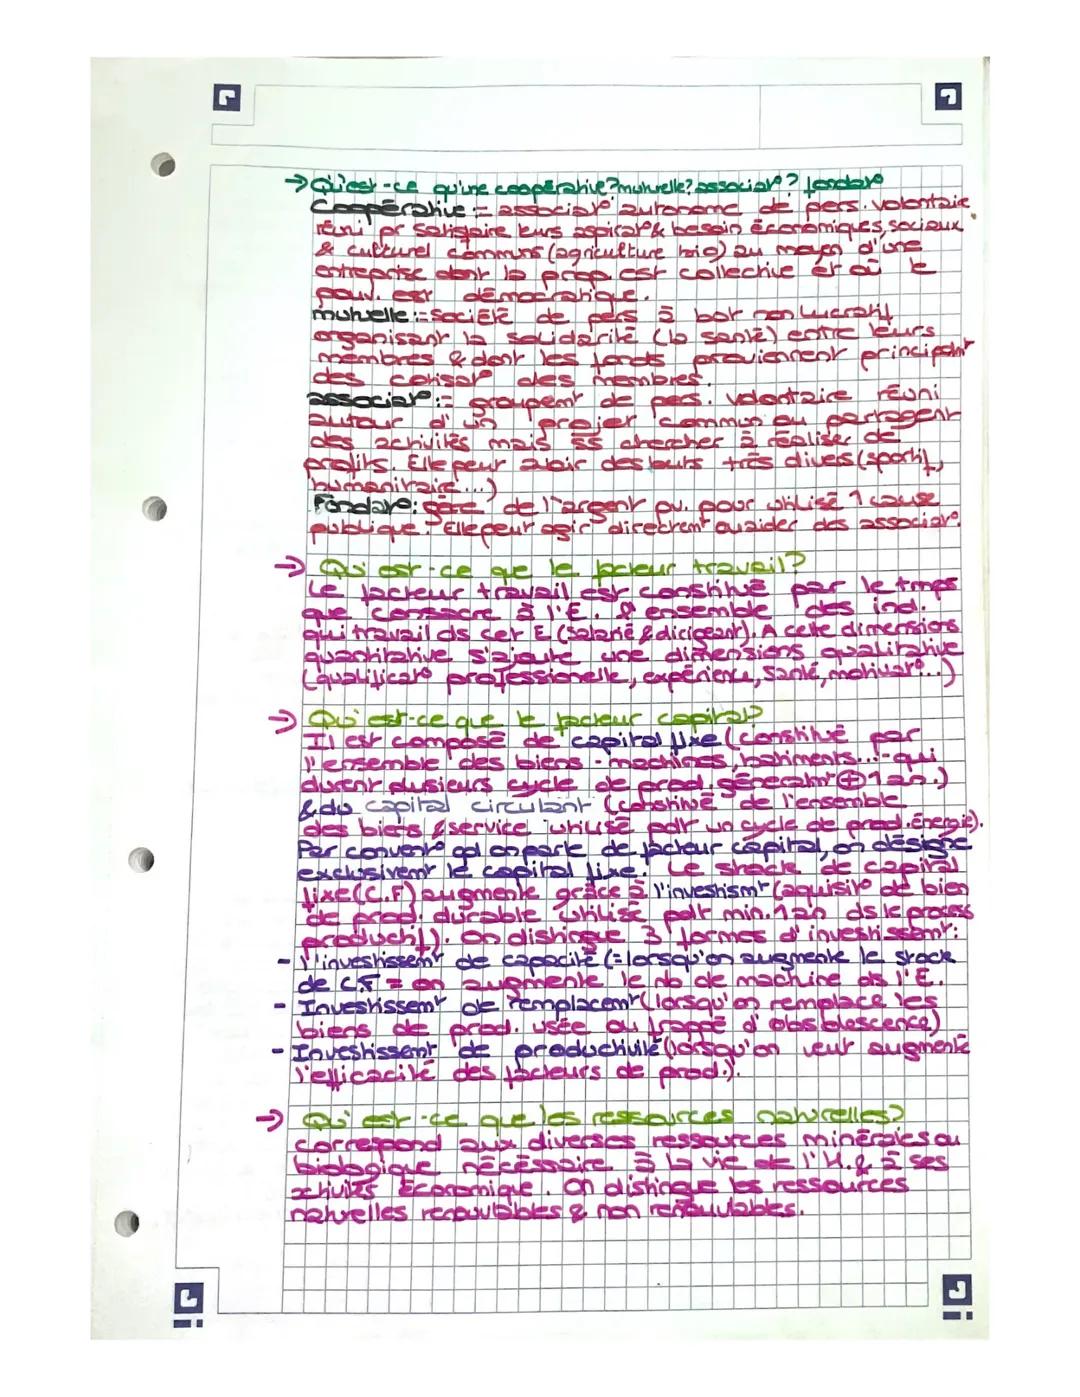 → Qu'est-ce qu'une coopérative? mutuelle? associat°? fondat°
Coopérative := associat° autonome de pers. volontaire
réuni pr satisfaire leurs aspirat° & besoin économiques, sociaux
& culturel communs (agriculture bio) au moyen d'une
entreprise dont la prop. est collective et où le
pouv. est démocratique.
mutuelle := société de pers à but non lucratif
organisant la solidarité (la santé) entre leurs
membres & dont les fonds proviennent principalmt
des cotisat° des membres.
associat° := groupemt de pers. volontaire réuni
autour d'un projet commun ou partagent
des activités mais ss chercher à réaliser de
profits. Elle peut avoir des buts très divers (sportif,
humanitaire...)
Fondat° : gère de l'argent pv. pour utilisé 1 cause
publique. Elle peut agir directemt ou aider des associat°.
→ Qu'est-ce que le facteur travail?
Le facteur travail est constitué par le tmps
que consacre à l'E. l'ensemble des ind.
qui travail ds cet E (salarié & dirigeant). A cette dimensions
quantitative s'ajoute une dimensions qualitative
(qualificat° professionelle, expérience, santé, motivat°...)
→ Qu'est-ce que le facteur capital?
Il est composé de capital fixe (constitué par
l'ensemble des biens - machines, batiments... - qui
durent plusieurs cycle de prod. généralmt ⊕ 1 an.)
& du capital circulant (constitué de l'ensemble
des biens & service utilisé pdt un cycle de prod. énergie).
Par convent° qd on parle de facteur capital, on désigne
exclusivemt le capital fixe. Le stock de capital
fixe (C.F) augmente grâce à l'investismt (aquisit° de bien
de prod. durable utilisé pdt min. 1 an ds le process
productif). On distingue 3 formes d'investissemt:
- l'investissemt de capacité (= lorsqu'on augmente le stock
de C.F = on augmente le nb de machine ds l'E.
- Investissemt de remplacemt (lorsqu'on remplace les
biens de prod. usée ou frappé d'obsolescence)
- Investissemt de productivité (lorsqu'on veut augmenté
l'efficacité des facteurs de prod.).
→ Qu'est-ce que les ressources naturelles?
Correspond aux diverses ressources minérales ou
biologique nécéssaire à la vie de l'H. & à ses
activités économique. On distingue les ressources
naturelles renouvlables & non renouvlables.